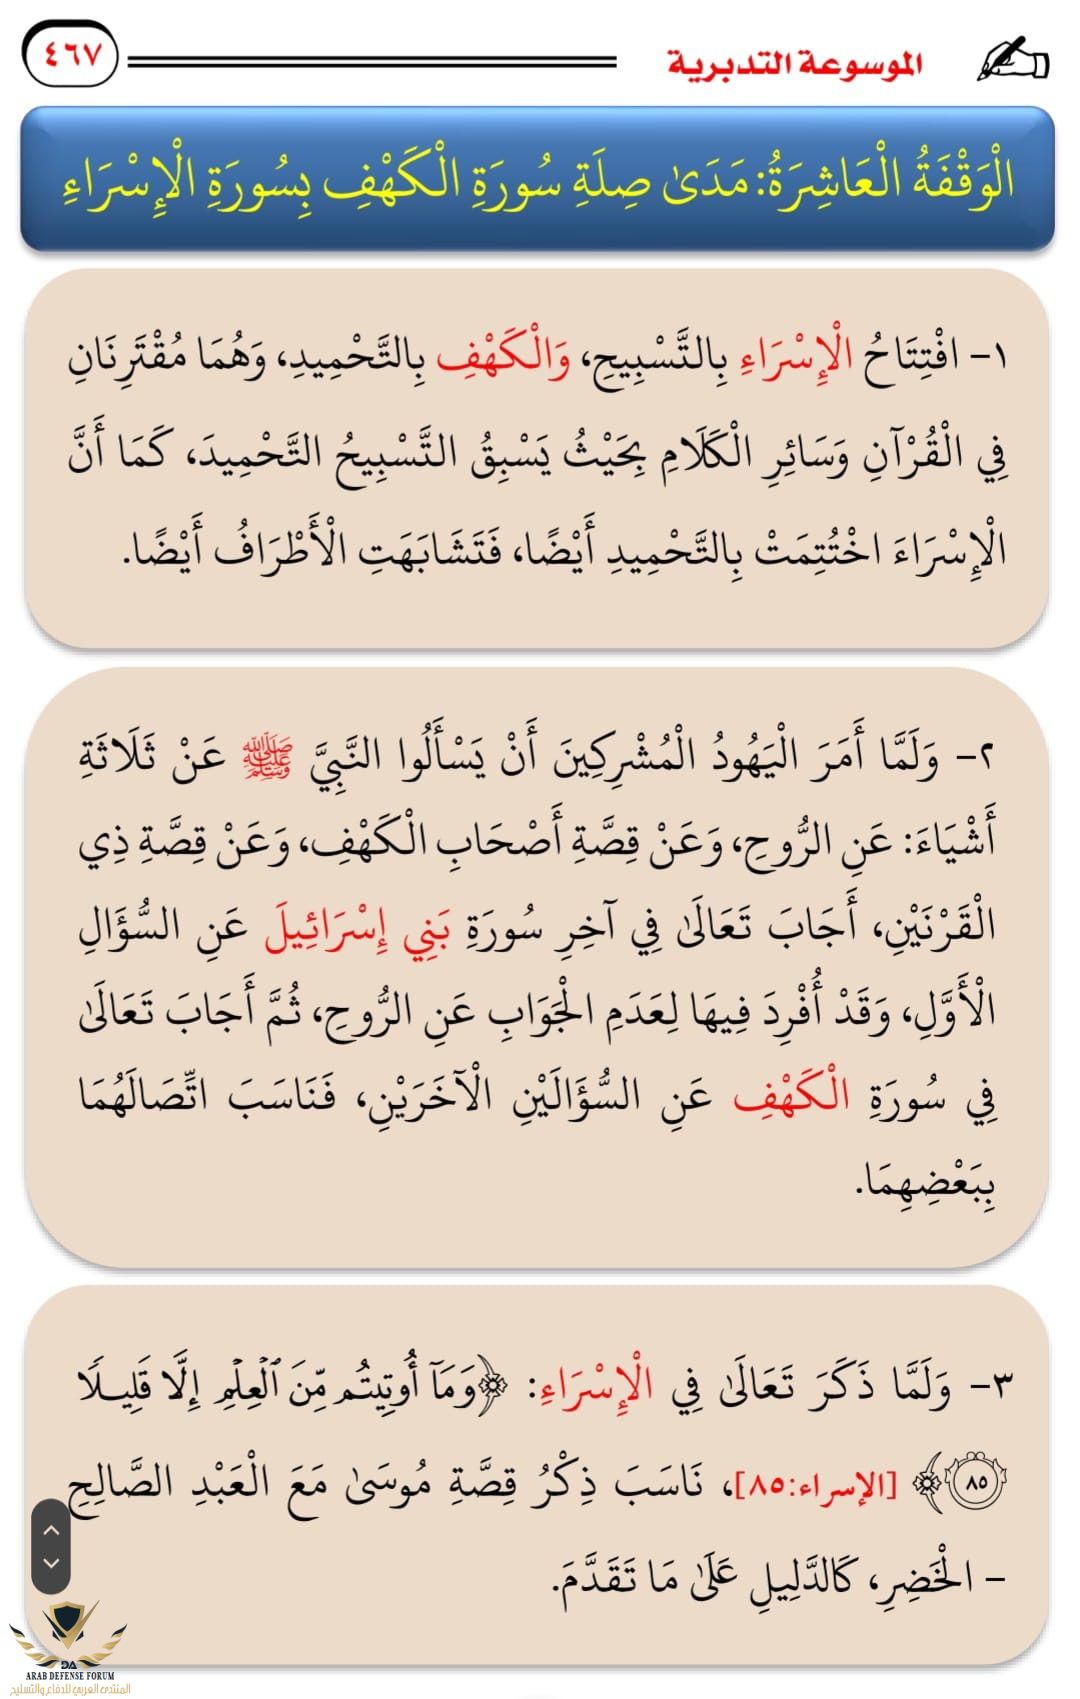 الموسوعة التدبرية
٤٦٧
الْوَقْفَةُ الْعَاشِرَةُ: مَدَىٰ صِلَةِ سُورَةِ الْكَهْفِ بِسُورَةِ الْإِسْرَاءِ
١- افْتِتَاحُ الْإِسْرَاءِ بِالتَّسْبِيحِ، وَالْكَهْفِ بِالتَّحْمِيدِ، وَهُمَا مُقْتَرِنَانِ
فِي الْقُرْآنِ وَسَائِرِ الْكَلَامِ بِحَيْثُ يَسْبِقُ التَّسْبِيحُ التَّحْمِيدَ، كَمَا أَنَّ
الْإِسْرَاءَ اخْتُتِمَتْ بِالتَّحْمِيدِ أَيْضًا، فَتَشَابَهَتِ الْأَطْرَافُ أَيْضًا.
٢- وَلَمَّا أَمَرَ الْيَهُودُ الْمُشْرِكِينَ أَنْ يَسْأَلُوا النَّبِيَّ ﷺ عَنْ ثَلَاثَةِ
أَشْيَاءَ: عَنِ الرُّوحِ، وَعَنْ قِصَّةِ أَصْحَابِ الْكَهْفِ، وَعَنْ قِصَّةِ ذِي
الْقَرْنَيْنِ، أَجَابَ تَعَالَىٰ فِي آخِرِ سُورَةِ بَنِي إِسْرَائِيلَ عَنِ السُّؤَالِ
الْأَوَّلِ، وَقَدْ أُفْرِدَ فِيهَا لِعَدَمِ الْجَوَابِ عَنِ الرُّوحِ، ثُمَّ أَجَابَ تَعَالَىٰ
فِي سُورَةِ الْكَهْفِ عَنِ السُّؤَالَيْنِ الْآخَرَيْنِ، فَنَاسَبَ اتِّصَالَهُمَا
بِبَعْضِهِمَا.
٣- وَلَمَّا ذَكَرَ تَعَالَىٰ فِي الْإِسْرَاءِ: ﴿وَمَآ أُوتِيتُم مِّنَ ٱلْعِلْمِ إِلَّا قَلِيلًا
٨٥﴾ [الإسراء:٨٥]، نَاسَبَ ذِكْرُ قِصَّةِ مُوسَىٰ مَعَ الْعَبْدِ الصَّالِحِ
– الْخَضِرِ، كَالدَّلِيلِ عَلَىٰ مَا تَقَدَّمَ.
DA
ARAB DEFENSE FORUM
المنتدى العربي للدفاع والتسليح